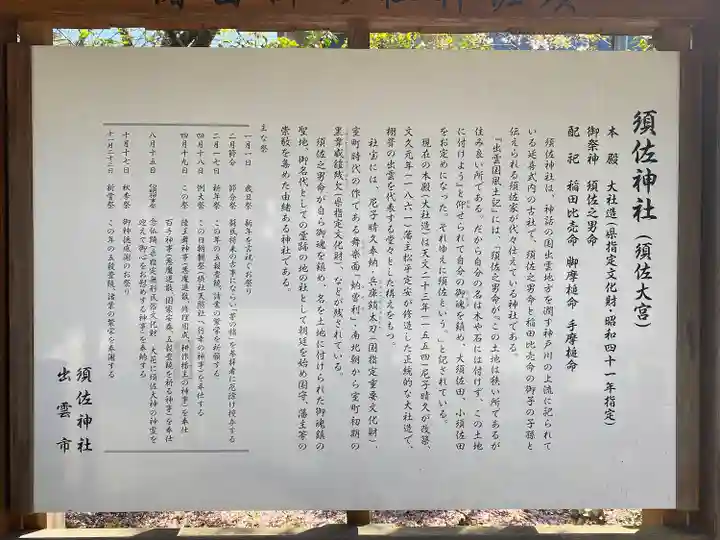 須佐神社（須佐大宮）
本殿 大社造（県指定文化財・昭和四十一年指定）
御祭神 須佐之男命
配祀 稲田比売命 脚摩槌命 手摩槌命
須佐神社は、神話の国出雲地方を潤す神戸川の上流に祀られて
いる延喜式内の古社で、須佐之男命と稲田比売命の御子の子孫と
伝えられる須佐家が代々仕えている神社である。
『出雲国風土記』には、「須佐之男命が『この土地は狭い所であるが
住み良い所である。だから自分の名は木や石には付けず、この土地
に付けよう』と仰せられて自分の御魂を鎮め、大須佐田、小須佐田
をお定めになった。それゆえに須佐という。」と記されている。
現在の本殿（大社造）は天文二十三年（一五五四）尼子晴久が改築、
文久元年（一八六一）藩主松平定安が修造した正統的な大社造で、
棚誉の出雲を代表する堂々とした構えをもつ。
社宝には、尼子晴久奉納・兵庫鎖太刀（国指定重要文化財）、
室町時代の作である舞楽面「納曽利」・南北朝から室町初期の
黒韋威鎧残欠（県指定文化財）、などが残されている。
須佐之男命が自ら御魂を鎮め、名を土地に付けられた御魂鎮の
聖地、御名代としての霊跡の地の社として朝廷を始め国守、藩主等の
崇敬を集めた由緒ある神社である。
主な祭
一月一日 歳旦祭 新年を言祝ぐお祭り
二月節分 節分祭 蘇民将来の古事にならい「茅の輪」を参拝者に厄除け授与する
二月一七日 祈年祭 この年の五穀豊穣、諸業の繁栄を祈願する
四月十八日 例大祭 この日朝覲祭（摂社天照社へ行幸の神事）を奉仕する
四月十九日 この祭 陵王舞神事（悪魔退散、修理固成、神作播主の神事）を奉仕
百手神事（悪魔退散、国家安泰、五穀豊穣を祈る神事）を奉仕
八月十五日 切明神事 念仏踊（県指定無形民俗文化財）、大花に須佐大神の神霊を
迎えて御心をお慰めする神事）を奉納する
十月十七日 秋季祭 御神徳感謝のお祭り
十一月二十三日 新嘗祭 この年の五穀豊穣、諸業の繁栄を感謝する
須佐神社
出雲市